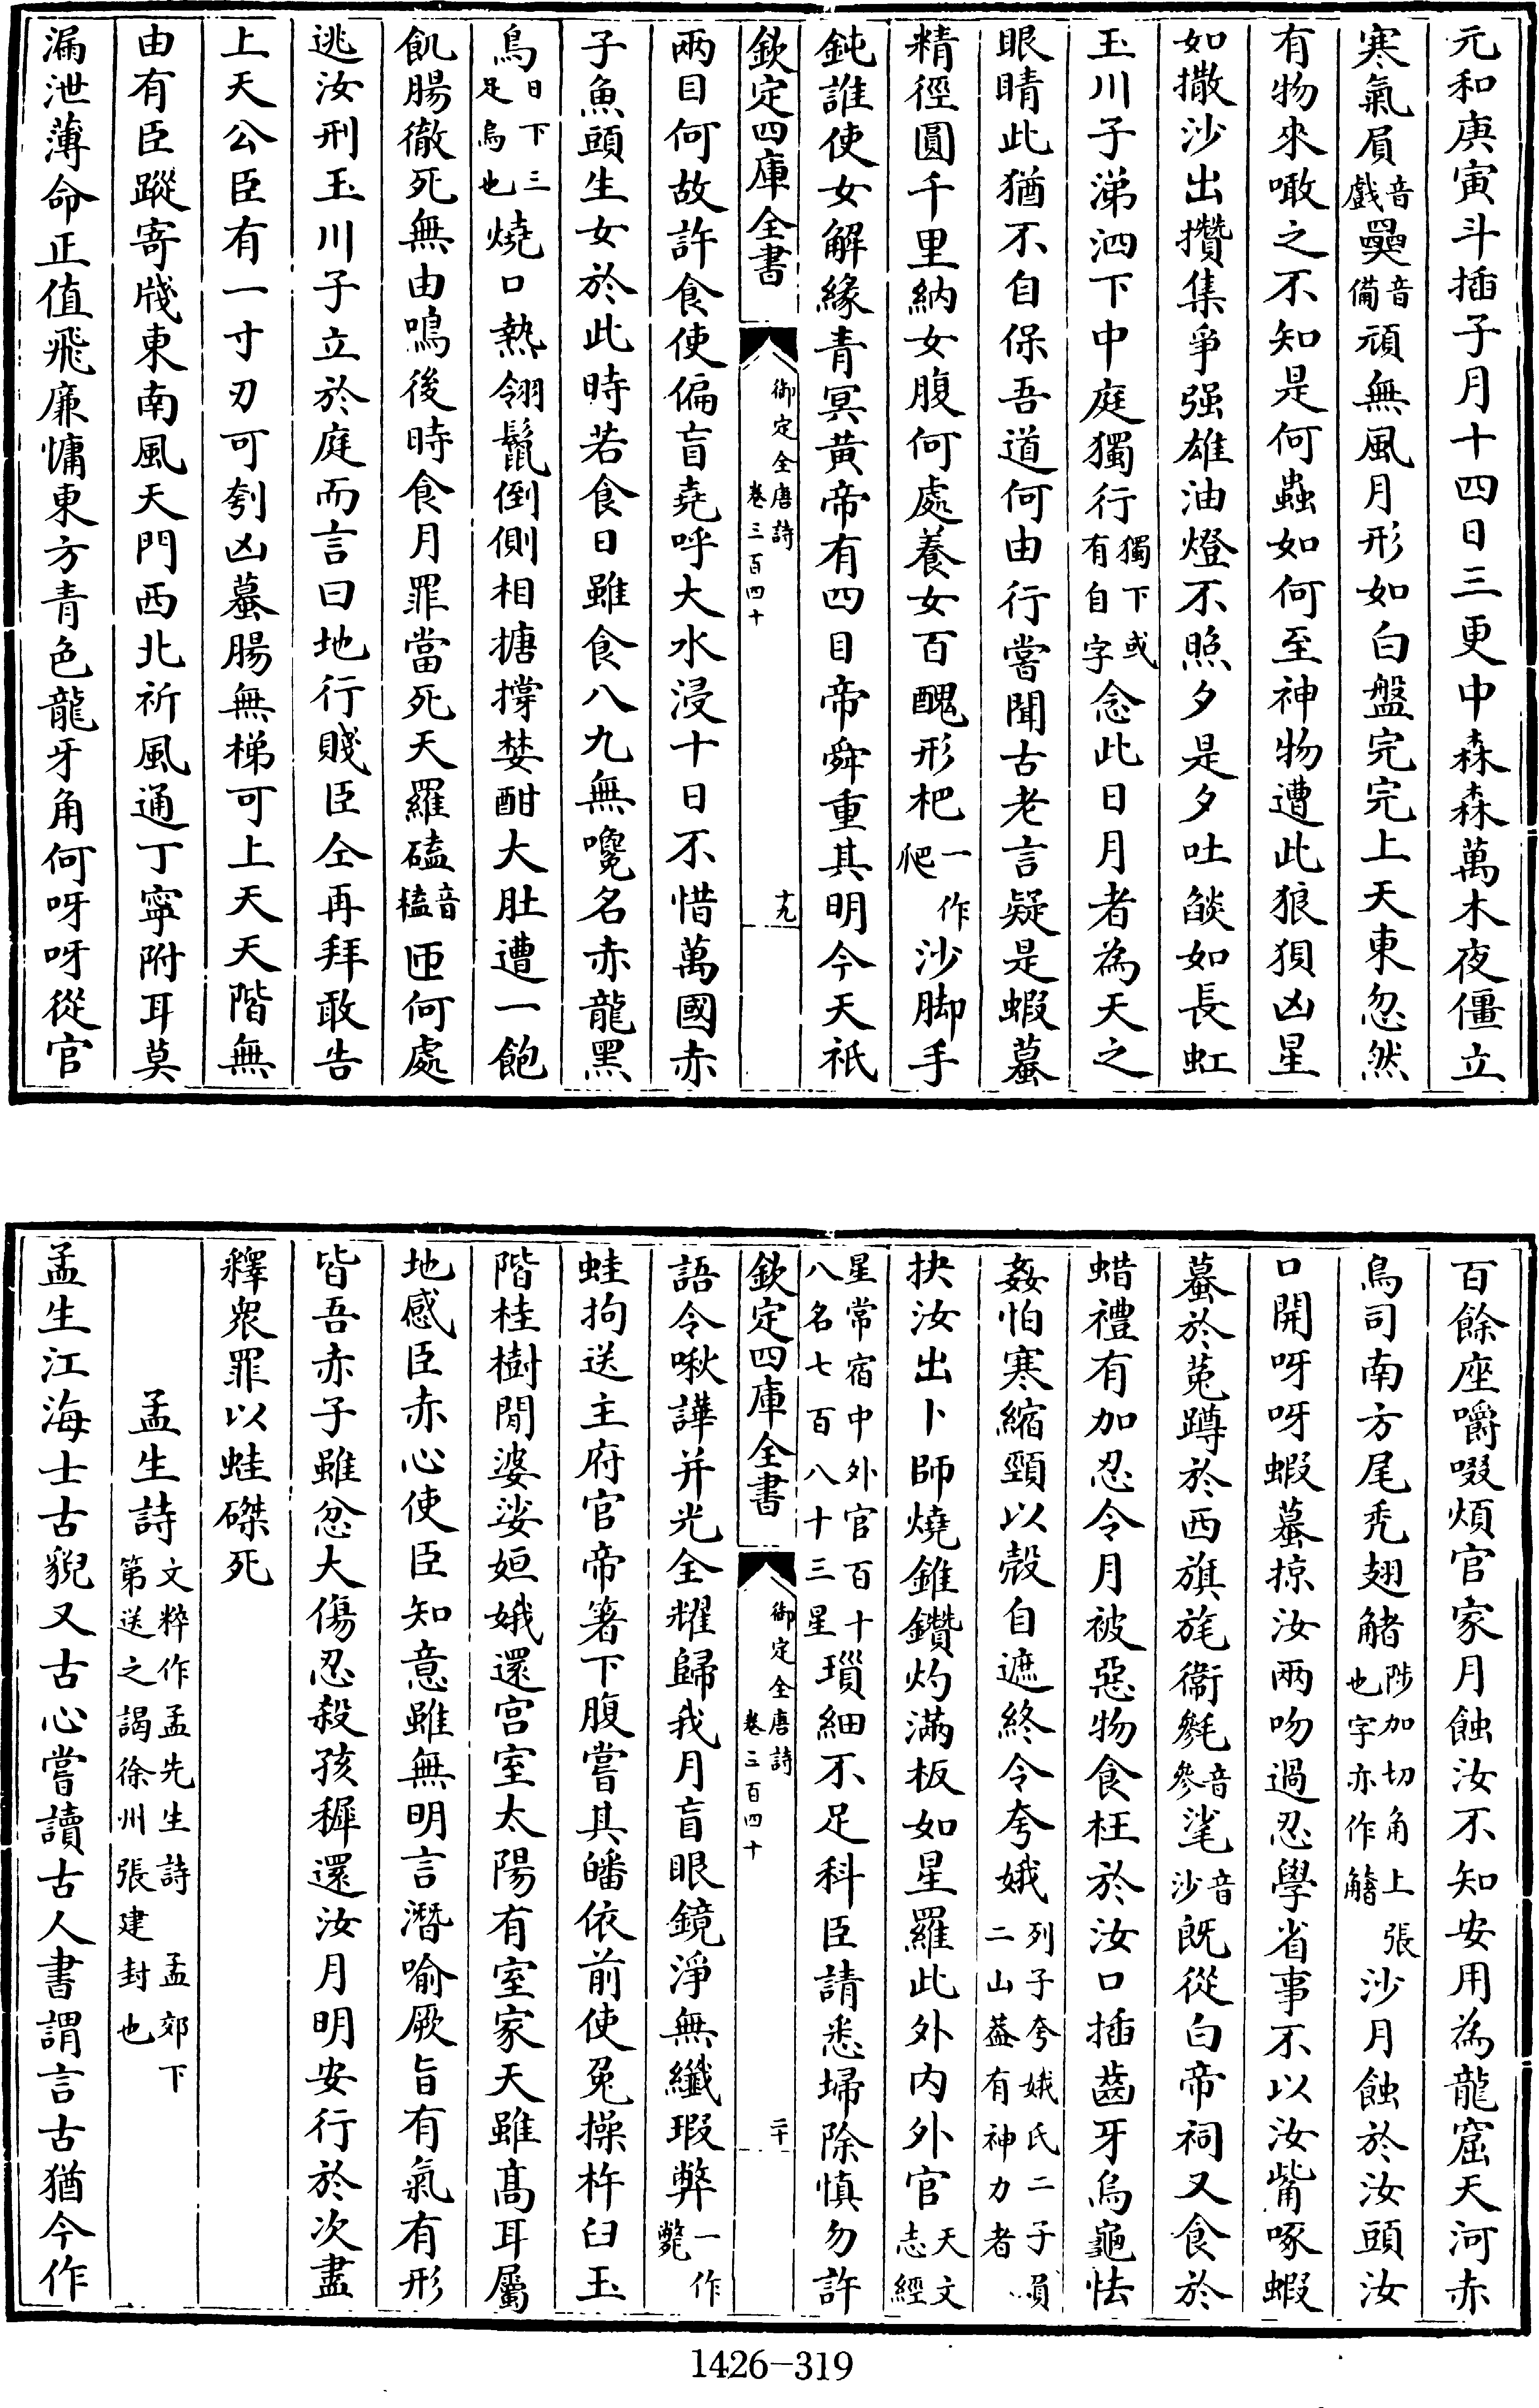 元和庚寅斗插子月十四日三更中森森萬木夜僵立
寒氣屓音戲奰音備頑無風月形如白盤完完上天東忽然
有物來噉之不知是何蟲如何至神物遭此狼狽凶星
如撒沙出攢集爭强雄油燈不照夕是夕吐燄如長虹
玉川子涕泗下中庭獨行獨下或有自字念此日月者為天之
眼睛此猶不自保吾道何由行嘗聞古老言疑是蝦蟇
精徑圓千里納女腹何處養女百醜形杷一作爬沙脚手
鈍誰使女解緣青冥黃帝有四目帝舜重其明今天祇
欽定四庫全書 御定全唐詩卷三百四十 十九
兩目何故許食使偏盲堯呼大水浸十日不惜萬國赤
子魚頭生女於此時若食日雖食八九無嚵名赤龍黑
鳥日下三足烏也燒口熱翎鬣倒側相搪撐婪酣大肚遭一飽
飢腸徹死無由鳴後時食月罪當死天羅磕音榼匝何處
逃汝刑玉川子立於庭而言曰地行賤臣仝再拜敢告
上天公臣有一寸刃可刳凶蟇腸無梯可上天天階無
由有臣蹤寄牋東南風天門西北祈風通丁寧附耳莫
漏泄薄命正值飛廉慵東方青色龍牙角何呀呀從官
百餘座嚼啜煩官家月蝕汝不知安用為龍窟天河赤
鳥司南方尾秃翅觰陟加切角上張也字亦作䚲沙月蝕於汝頭汝
口開呀呀蝦蟇掠汝兩吻過忍學省事不以汝觜啄蝦
蟇於菟蹲於西旗旄衛毿音參毟音沙既從白帝祠又食於
蜡禮有加忍令月被惡物食枉於汝口插齒牙烏龜怯
姦怕寒縮頸以殼自遮終令夸娥列子夸娥氏二子員二山葢有神力者
抉汝出卜師燒錐鑽灼滿板如星羅此外内外官天文志經
星常宿中外官百十八名七百八十三星瑣細不足科臣請悉埽除慎勿許
欽定四庫全書 御定全唐詩卷三百四十 二十
語令啾譁并光全耀歸我月盲眼鏡淨無纖瑕弊一作斃
蛙拘送主府官帝箸下腹嘗其皤依前使兔操杵臼玉
階桂樹閒婆娑姮娥還宫室太陽有室家天雖高耳屬
地感臣赤心使臣知意雖無明言潛喻厥旨有氣有形
皆吾赤子雖忿大傷忍殺孩穉還汝月明安行於次盡
釋衆罪以蛙磔死
孟生詩文粹作孟先生詩 孟郊下第送之謁徐州張建封也
孟生江海士古貌又古心嘗讀古人書謂言古猶今作
1426-319